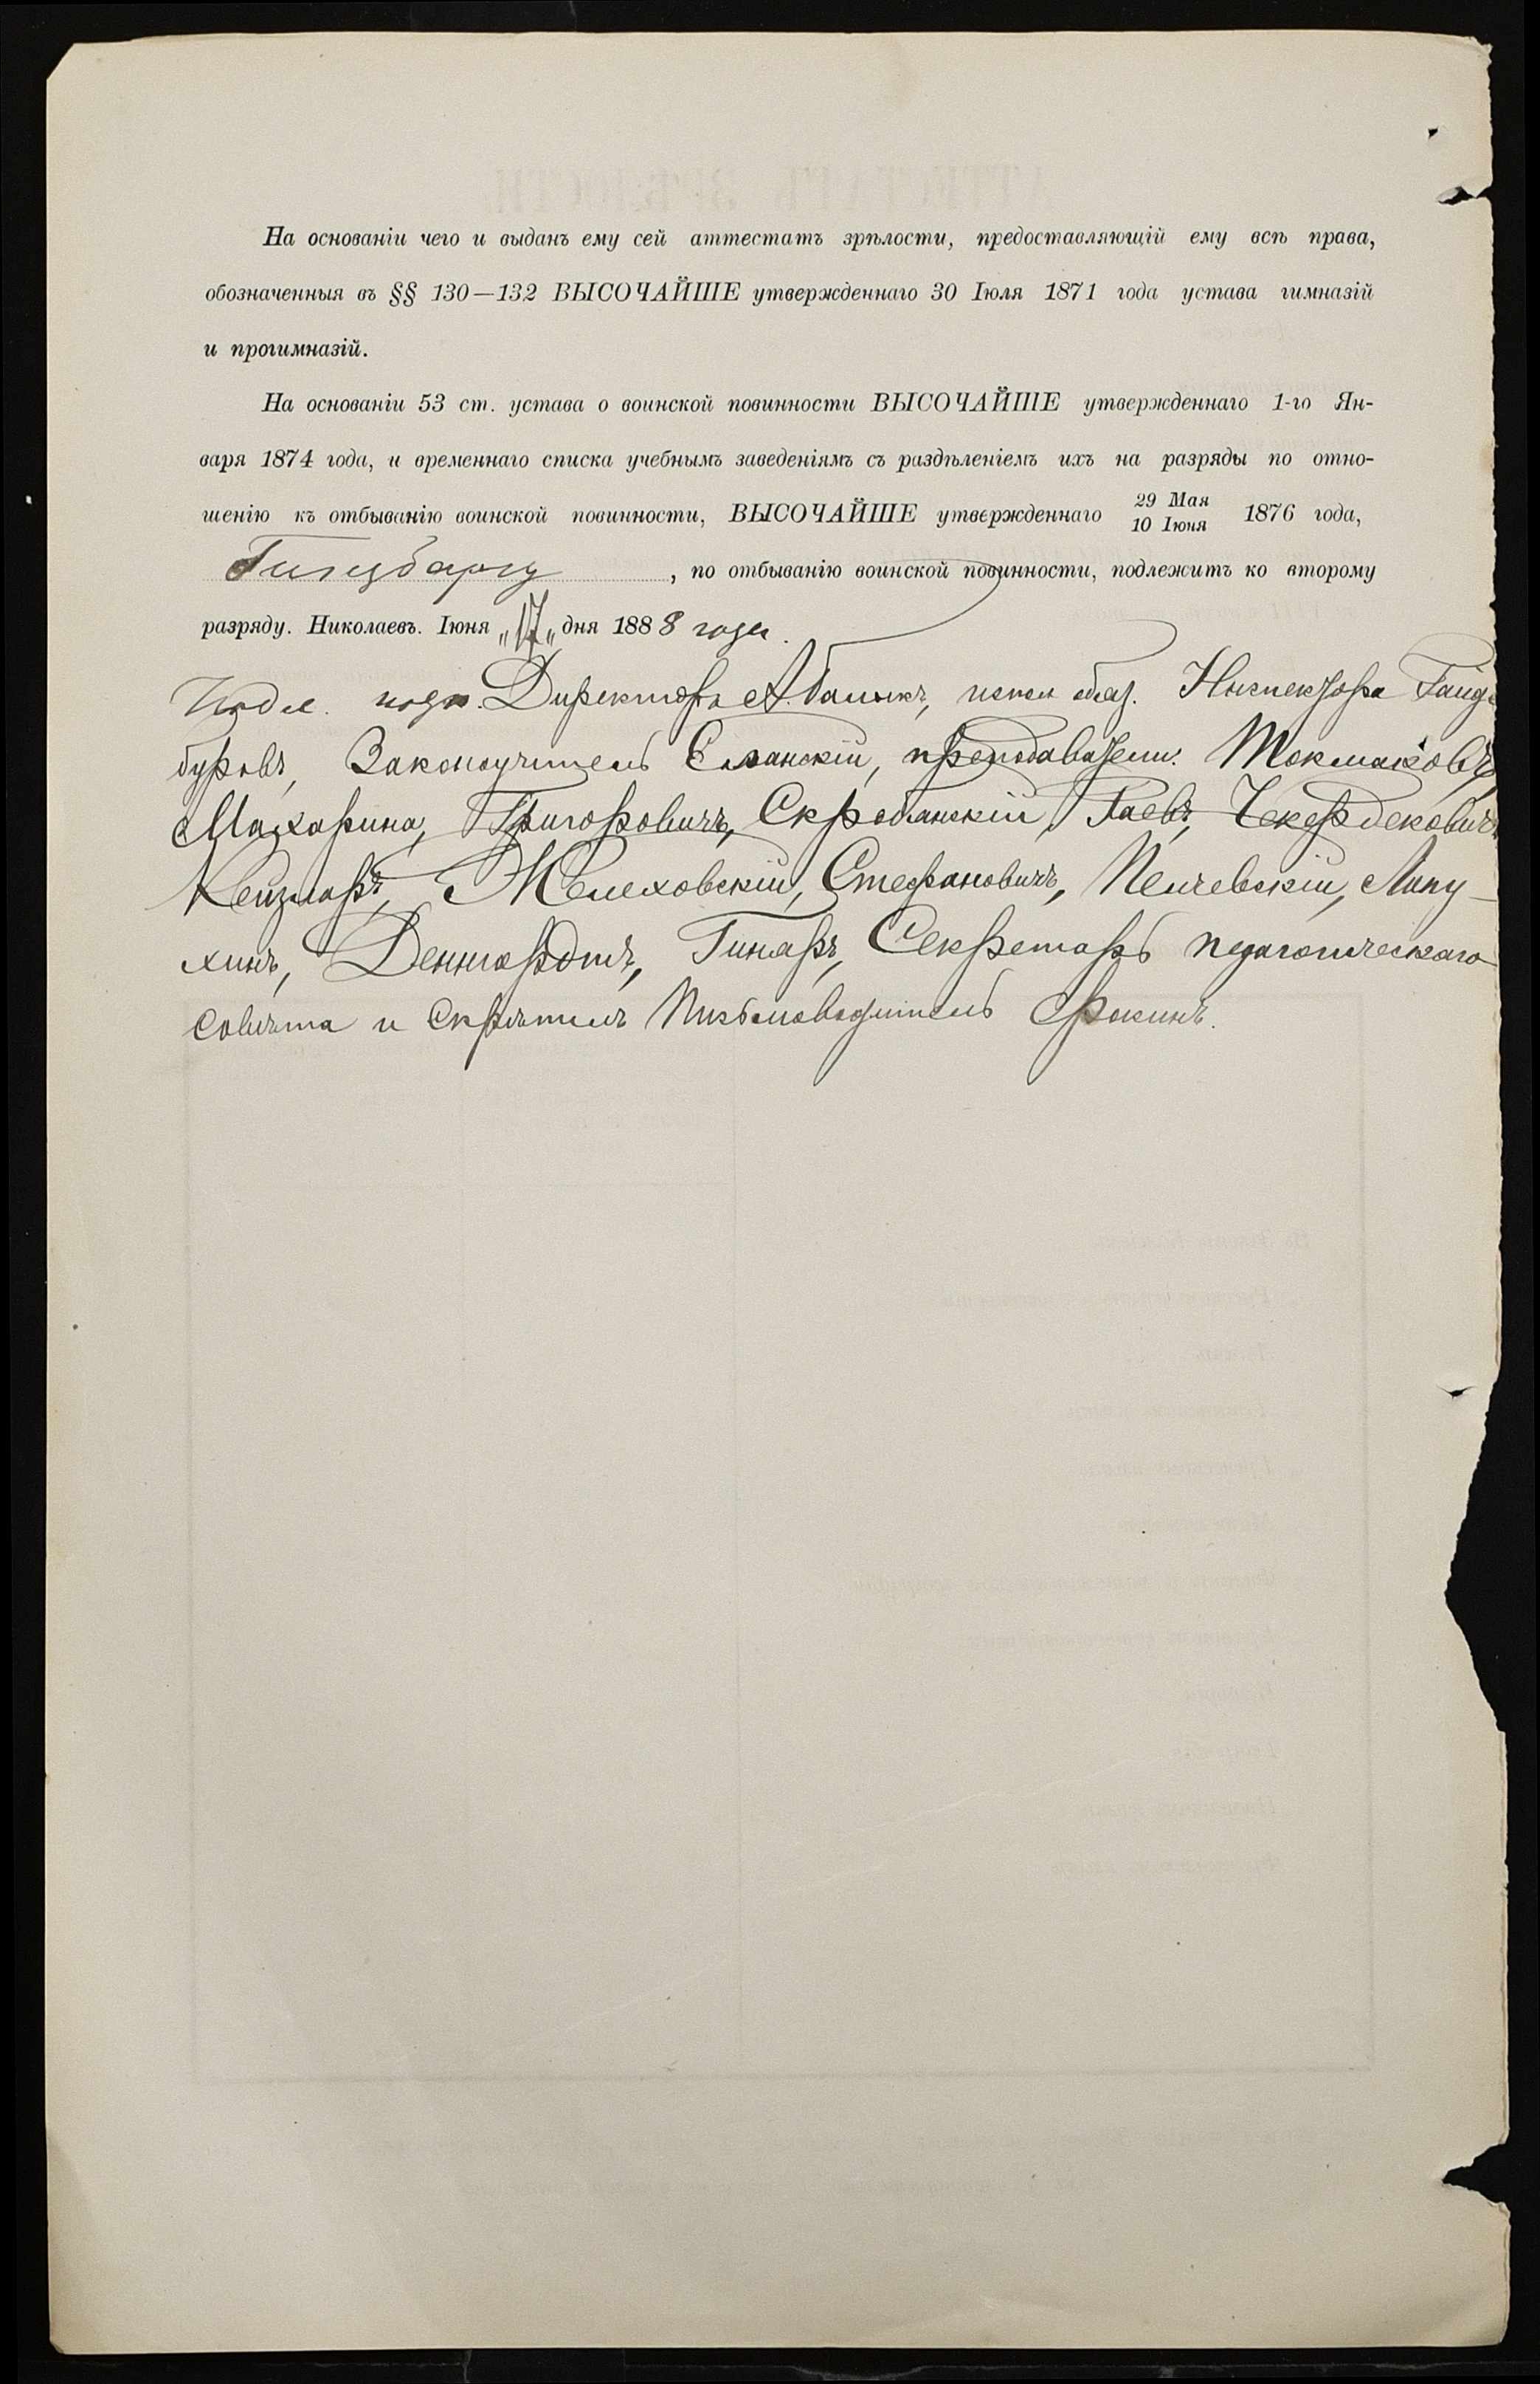 На основаніи чего и выданъ ему сей аттестатъ зрѣлости, предоставляющій ему всѣ права,
обозначенныя въ §§ 130—132 ВЫСОЧАЙШЕ утвержденнаго 30 Іюля 1871 года устава гимназій
и прогимназій.
На основаніи 53 ст. устава о воинской повинности ВЫСОЧАЙШЕ утвержденнаго 1-го Ян-
варя 1874 года, и временнаго списка учебнымъ заведеніямъ съ раздѣленіемъ ихъ на разряды по отно-
шенію къ отбыванію воинской повинности, ВЫСОЧАЙШЕ утвержденнаго 29 Мая 10 Іюня 1876 года,
Гинцбаргу, по отбыванію воинской повинности, подлежитъ ко второму
разряду. Николаевъ. Іюня „17„ дня 1888 года.
подп. Директоръ А. Балыкъ, испол. обяз. Инспектора Гайде
буровъ, Законоучитель Еланскій, преподаватели: Токмаковъ,
Мазарина, Григоровичъ, Скробанскій, Гаевъ, Чекердековичъ
Кейзларъ, Мелеховскій, Стефановичъ, Пелчевскій, Липу-
хинъ, Деннгардтъ, Гинаръ, Секретарь педагогическаго
совѣта и Скрѣпилъ Письмоводитель Фокинъ.